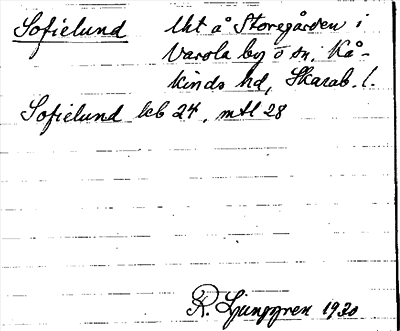 Sofielund lht å Storegården i
Varola by o sn, Kå-
kinds hd, Skarab. l.
Sofielund kb 24, mtl 28
R. Ljunggren 1930